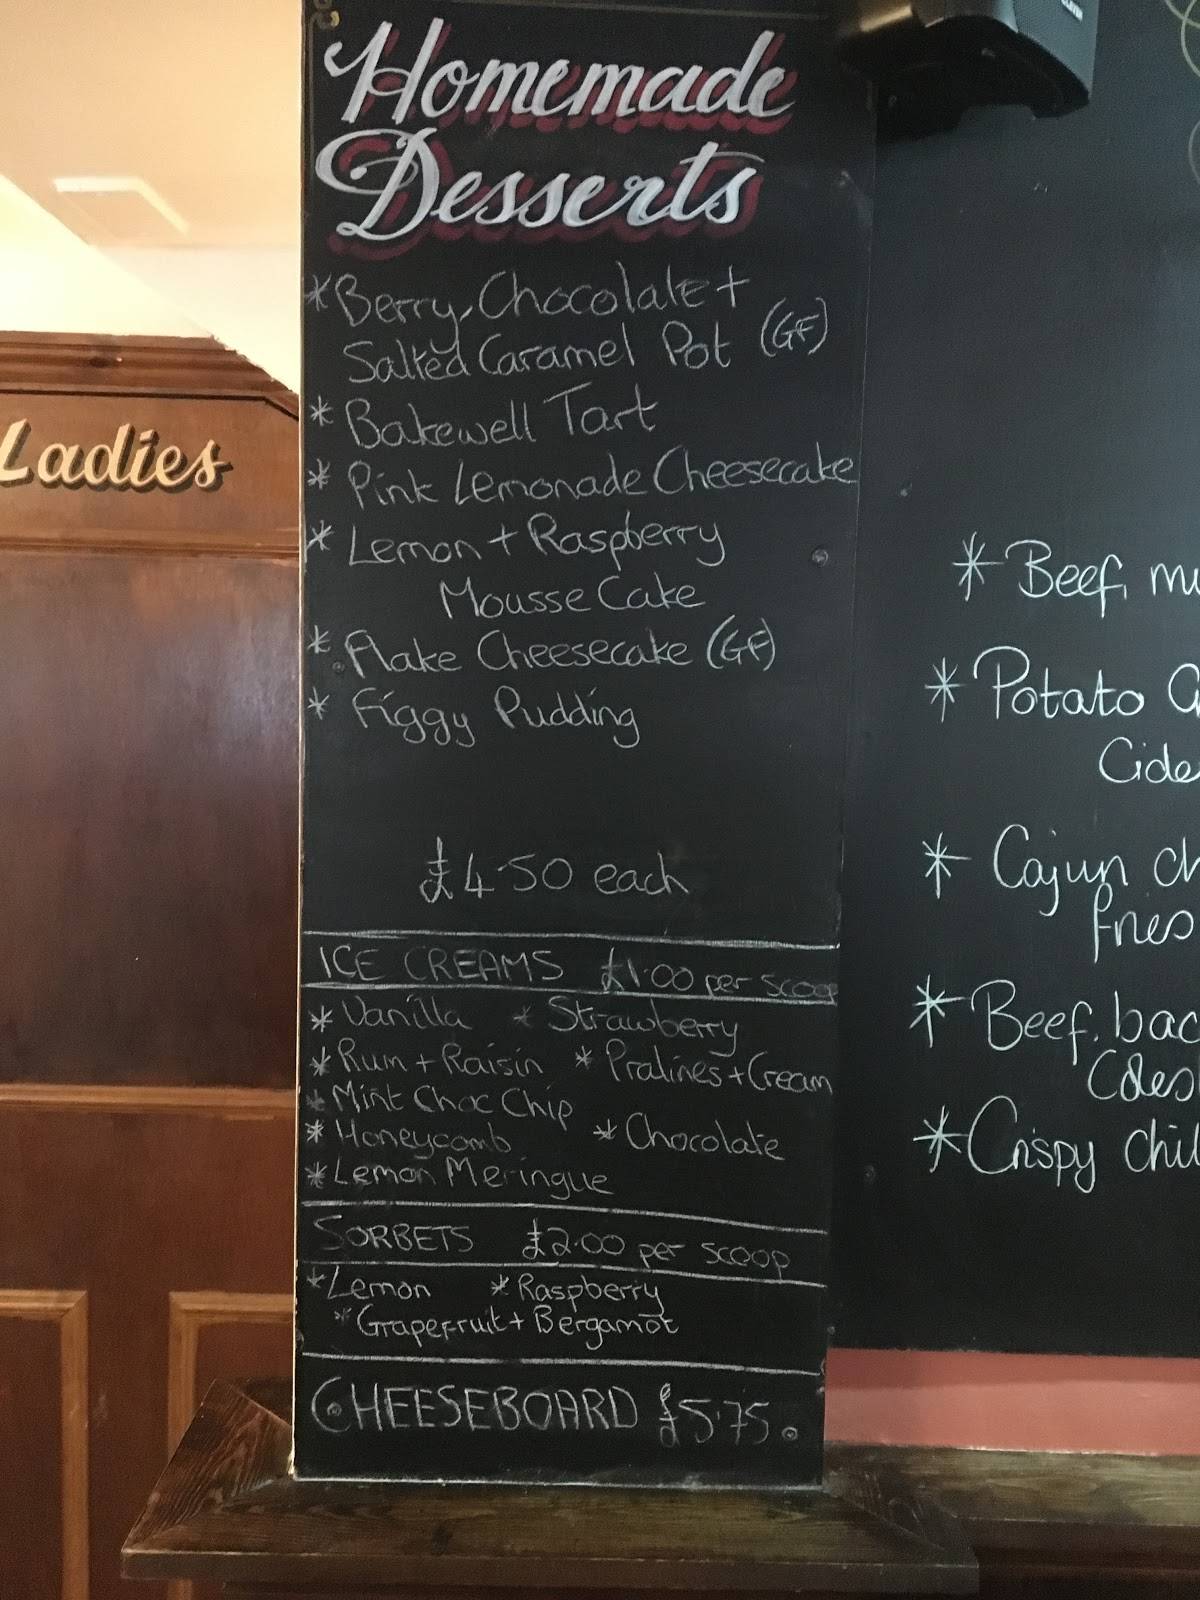 Homemade
Desserts
* Berry, Chocolate +
Salted Caramel Pot (GF)
* Bakewell Tart
* Pink Lemonade Cheesecake
* Lemon + Raspberry
Mousse Cake
* Flake Cheesecake (GF)
* Figgy Pudding
£4.50 each
ICE CREAMS £1.00 per scoop
* Vanilla * Strawberry
* Rum + Raisin * Pralines + Cream
* Mint Choc Chip
* Honeycomb * Chocolate
* Lemon Meringue
SORBETS £2.00 per scoop
* Lemon * Raspberry
* Grapefruit + Bergamot
CHEESEBOARD £5.75
Ladies
* Beef, mu
* Potato
Cide
* Cajun ch
fries
* Beef, bac
Coles
* Crispy chil